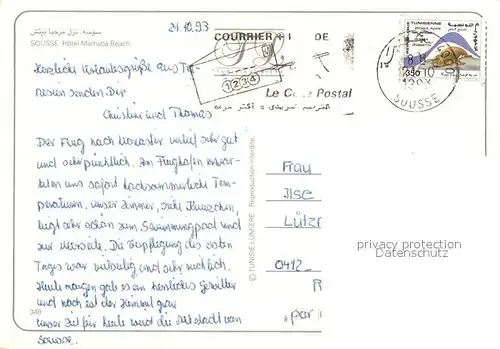 سوسه. نزل مرحبا بيتش
SOUSSE: Hôtel Marhaba Beach
21.10.93
COURRIER I DE
Le Co Postal
1234
TUNISIENNE
390
SOUSSE
Herzliche Urlaubsgrüße aus Tu-
nesien senden Dir
Christine und Thomas
Der Flug nach Monastir verlief sehr gut
und sehr pünktlich. Am Flughafen erwar-
teten uns sofort hochsommerliche Tem-
peraturen. Unser Zimmer, siehe Kreuzchen,
liegt sehr schön zum Swimmingpool und
zur Meerseite. Die Verpflegung des ersten
Tages war vielseitig und sehr reichlich.
Heute morgen gab es ein herrliches Gewitter
und noch ist der Himmel grau
Unser Ziel für heute wird die Altstadt von
Sousse.
349
© TUNISIE LUMIERE Reproduction interdite.
Frau
Ilse
Lützn
0412
"par
privacy protection
Datenschutz